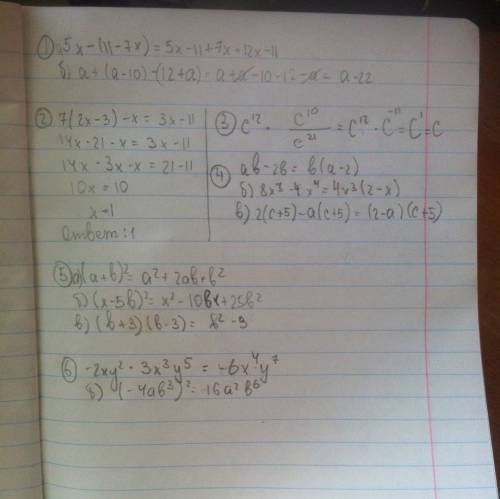 ① а) 5x-(11-7x)=5x-11+7x=12x-11
б) a+(a-10)-(12+a)=a+a-10-12-a=a-22
② 7(2x-3)-x=3x-11
14x-21-x=3x-11
14x-3x-x=21-11
10x=10
x=1
Ответ: 1
③ c¹²· c¹⁰/c²¹ = c¹²·c⁻¹¹=c¹=c
④ ab-2b=b(a-2)
б) 8x³-4x⁴=4x³(2-x)
в) 2(c+5)-a(c+5)=(2-a)(c+5)
⑤ а) (a+b)²=a²+2ab+b²
б) (x-5b)²=x²-10bx+25b²
в) (b+3)(b-3)=b²-3
⑥ -2xy²·3x³y⁵=-6x⁴y⁷
б) (-4ab³)²=16a²b⁶